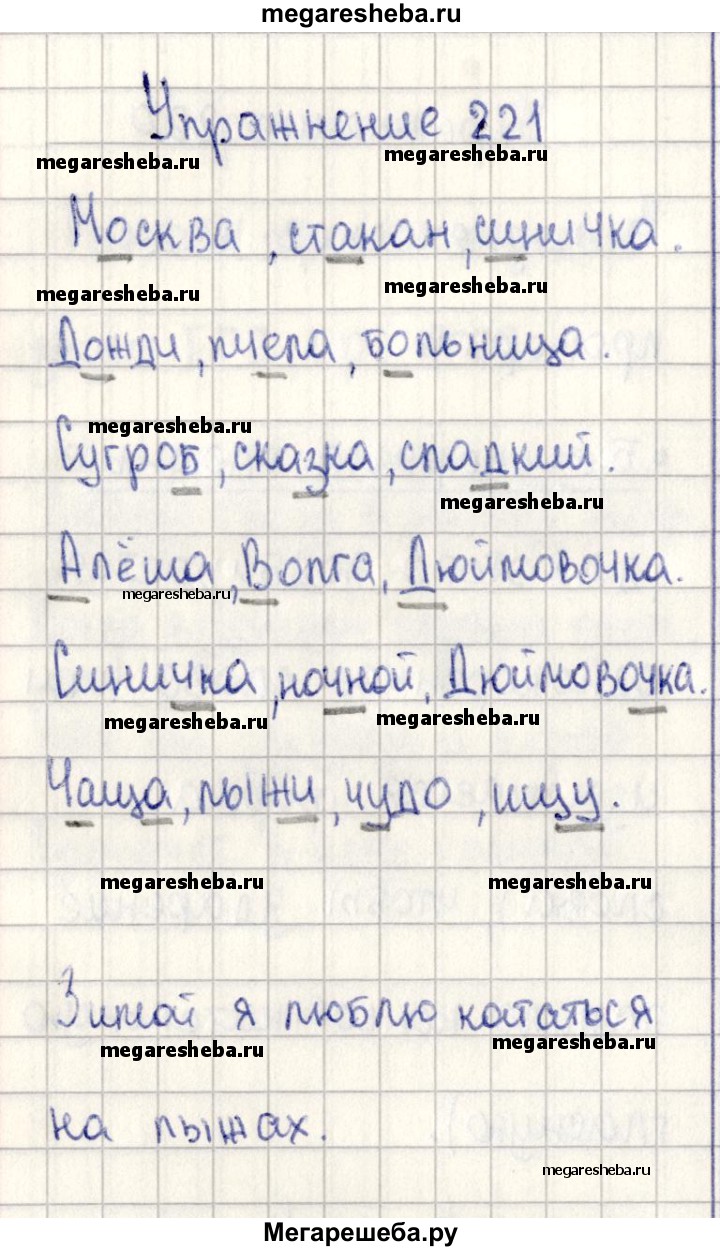 megaresheba.ru
Упражнение 221
megaresheba.ru megaresheba.ru
Москва, стакан, синичка.
megaresheba.ru megaresheba.ru
Дожди, пчела, больница.
megaresheba.ru
Сугроб, сказка, сладкий.
megaresheba.ru
Алёша, Волга, Дюймовочка.
megaresheba.ru
Синичка, ночной, Дюймовочка.
megaresheba.ru megaresheba.ru
Чаща, лыжи, чудо, ищу.
megaresheba.ru megaresheba.ru
Зимой я люблю кататься
megaresheba.ru megaresheba.ru
на лыжах.
megaresheba.ru
Мегарешеба.ру